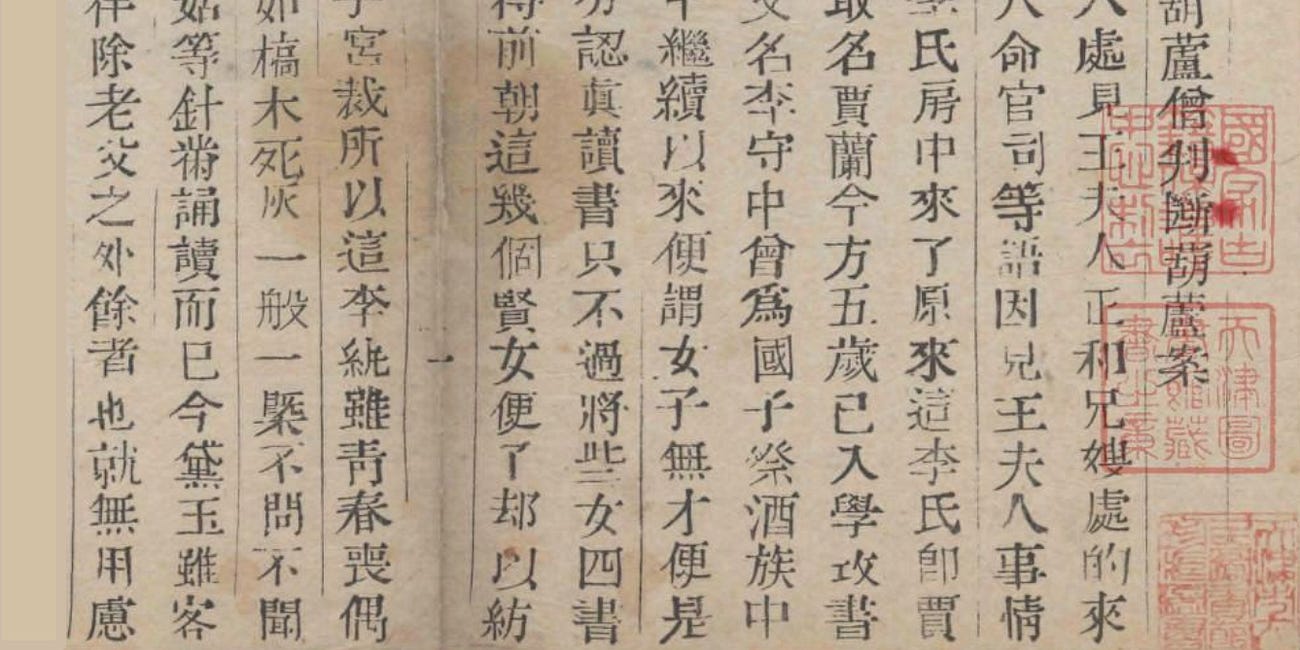 葫蘆僧判斷葫蘆案
人處見王夫人正和兄嫂處的來
人命官司等語因見王夫人事情
李氏房中來了原來這李氏即賈
取名賈蘭今方五歲已入學攻書
父名李守中曾爲國子祭酒族中
繼續以來便謂女子無才便是
認眞讀書只不過將些女四書
得前朝這幾個賢女便了却以紡
一
字宮裁所以這李紈雖青春喪偶
如槁木死灰一般一槩不問不聞
姑等針黹誦讀而已今黛玉雖客
伴除老父之外餘者也就無用慮
天津圖
書館藏
書之章